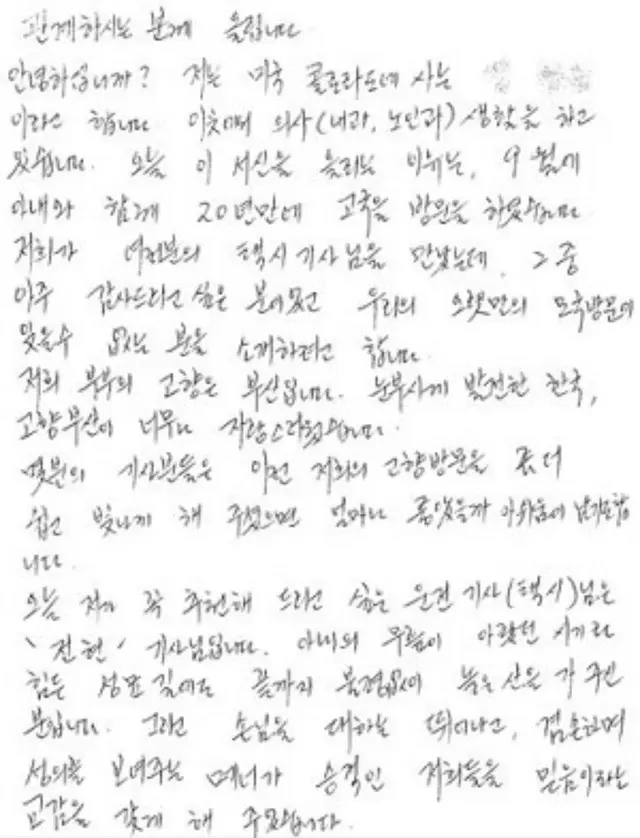 관계하시는 분께 올립니다
안녕하십니까? 저는 미국 콜로라도에 사는
이라고 합니다. 이곳에서 의사(내과, 노인과) 생활을 하고
있습니다. 오늘 이 서신을 올리는 이유는, 9월에
아내와 함께 20년만에 고국을 방문을 하였습니다.
저희가 여러분의 택시 기사님을 만났는데, 그 중
아주 감사드리고 싶은 분이 있고 우리의 오랫만의 모국방문에
잊을수 없는 분을 소개하려고 합니다.
저희 부부의 고향은 부산입니다. 눈부시게 발전한 한국,
고향부산이 너무나 자랑스러웠습니다.
몇분의 기사분들은 이런 저희의 고향방문을 좀 더
쉽고 빛나게 해 주셨으면 얼마나 좋았을까 아쉬움이 남기도 합
니다.
오늘 제가 꼭 추천해 드리고 싶은 운전 기사(택시)님은
'전현' 기사님입니다. 아내의 무릎이 아팠던 시기라
힘든 성묘길에도 끝까지 불평없이 높은 산을 가 주신
분입니다. 그리고 손님을 대하는 뛰어나고, 겸손하며
성의를 보여주는 매너가 승객인 저희들을 믿음이라는
교감을 갖게 해 주었습니다.